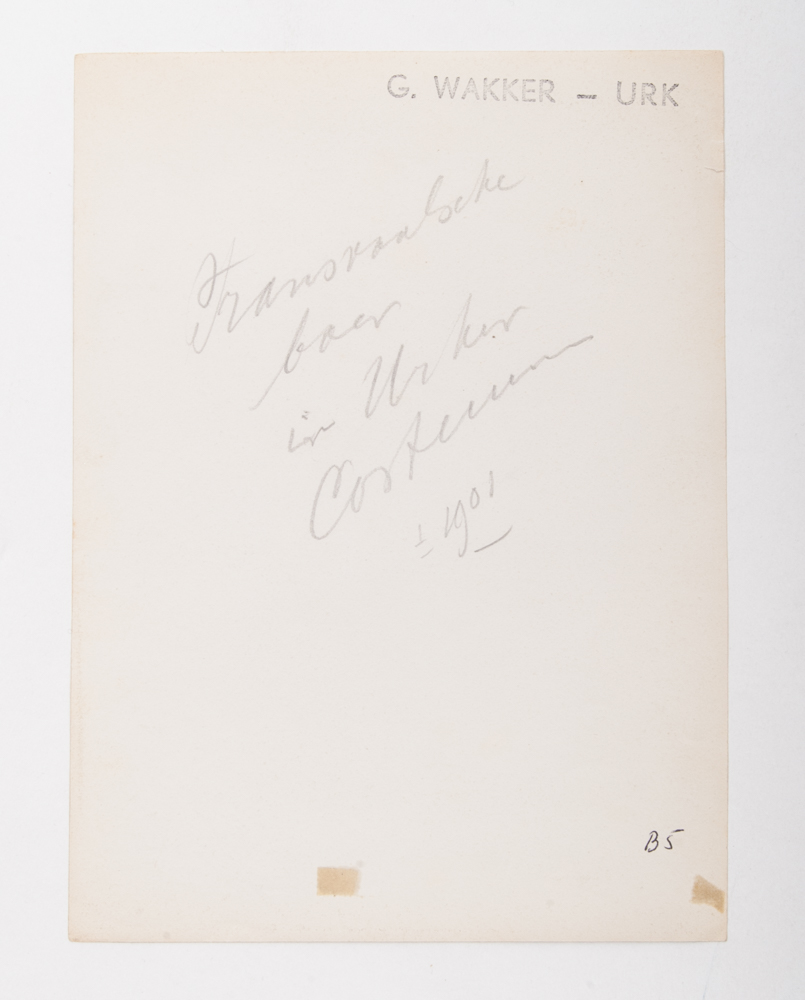 G. WAKKER - URK
Transvaalsche
boer
in Urker
Costuum
± 1901
B5